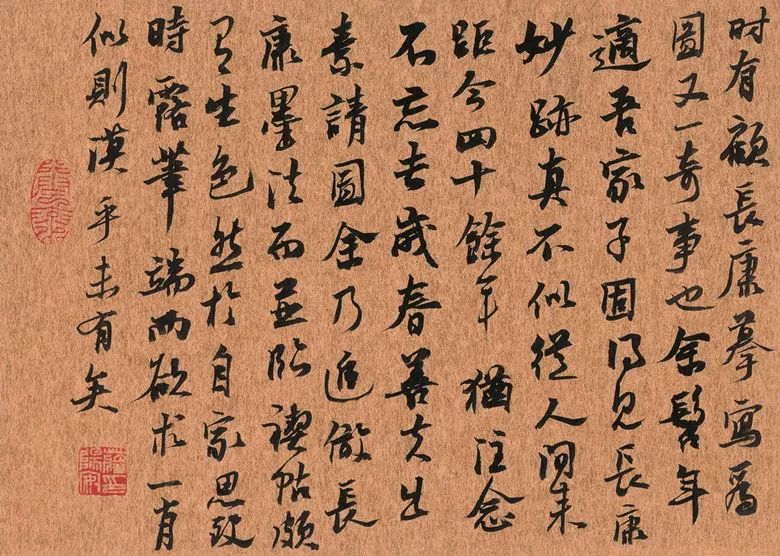 时有顾長康摹寫為
圖又一奇事也余髫年
適吾家子固得見長康
妙跡真不似從人间来
距今四十餘年 猶注念
不忘去歲春善夫出
素請圖余乃追倣長
康墨法而並臨禊帖頗
有生色然於自家思致
時露筆端而欲求一肖
似則漠乎未有矣